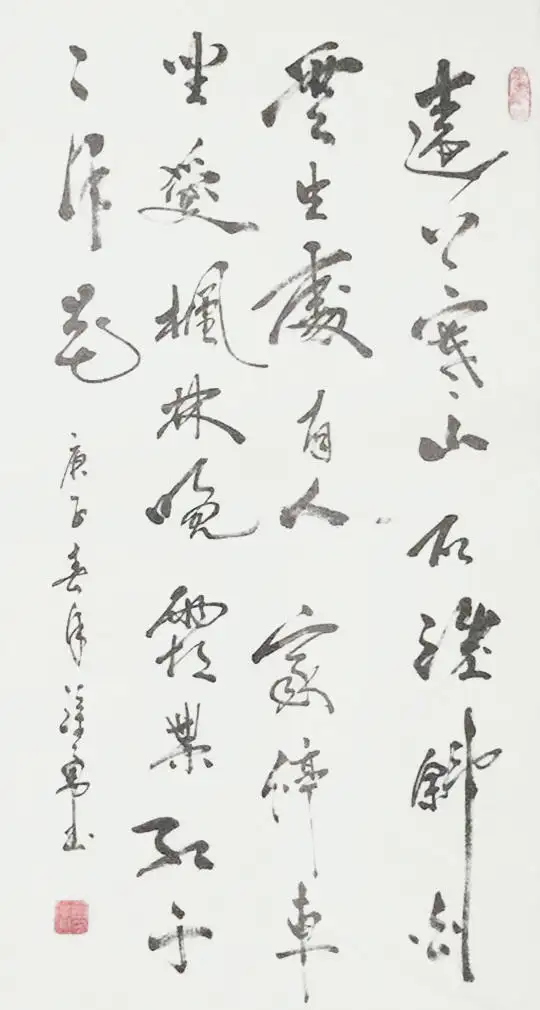 遠上寒山石徑斜白
雲生處有人家停車
坐愛楓林晚霜葉紅于
二月花
庚子春月書